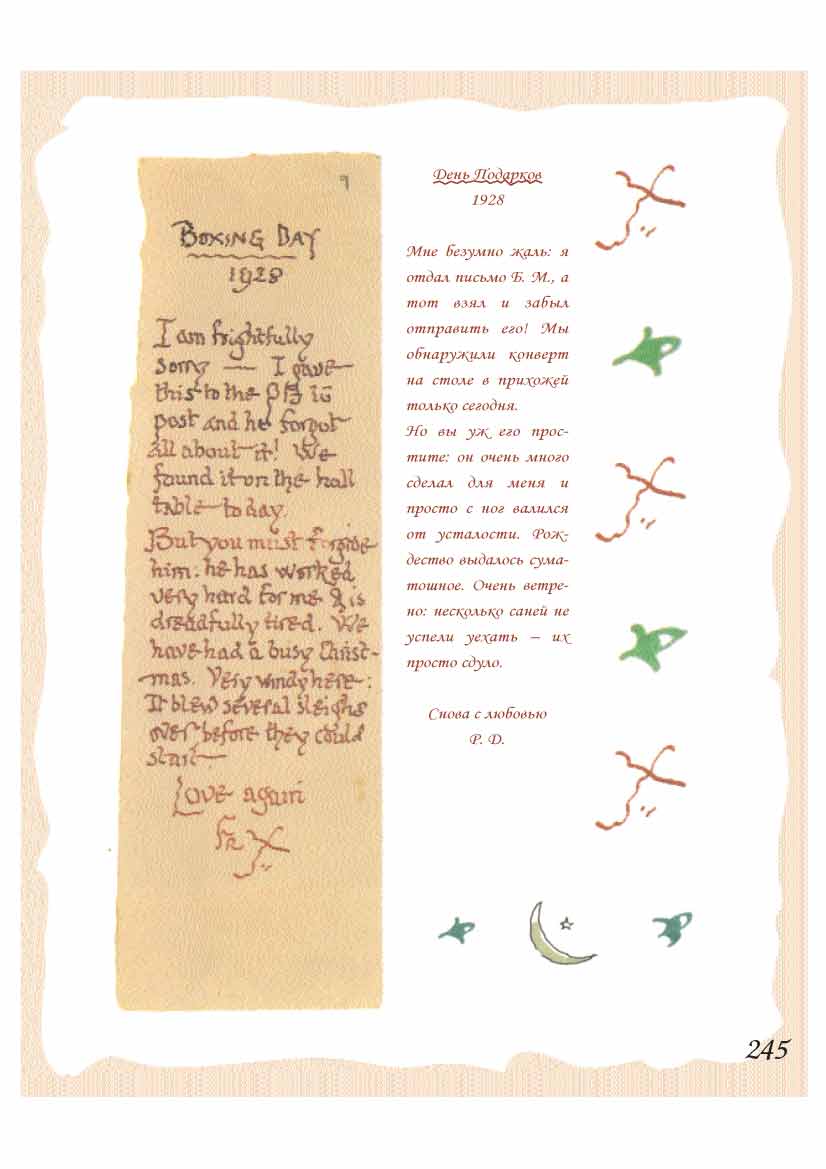 BOXING DAY
1928
I am frightfully
sorry — I gave
this to the PB to
post and he forgot
all about it! We
found it on the hall
table to day.
But you must forgive
him: he has worked
very hard for me & is
dreadfully tired. We
have had a busy Christ-
mas. Very windy here:
It blew several sleighs
over before they could
start
Love again
Fr X
День Подарков
1928
Мне безумно жаль: я
отдал письмо Б. М., а
тот взял и забыл
отправить его! Мы
обнаружили конверт
на столе в прихожей
только сегодня.
Но вы уж его прос-
тите: он очень много
сделал для меня и
просто с ног валился
от усталости. Рож-
дество выдалось сума-
тошное. Очень ветре-
но: несколько саней не
успели уехать – их
просто сдуло.
Снова с любовью
Р. Д.
245